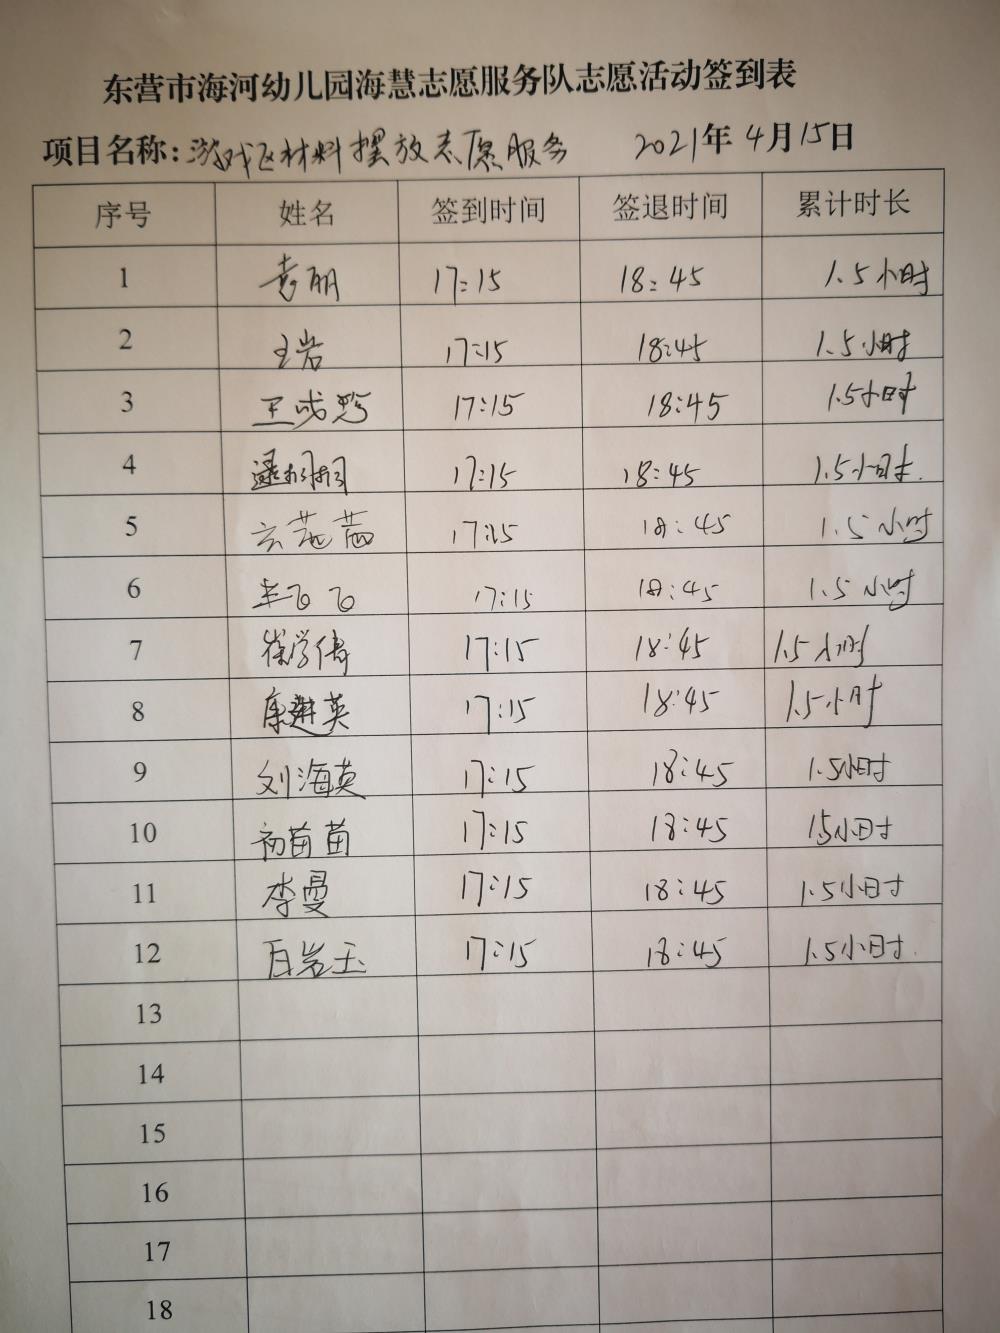 东营市海河幼儿园海慧志愿服务队志愿活动签到表
项目名称:游戏区材料摆放志愿服务 2021年4月15日
序号 姓名 签到时间 签退时间 累计时长
1 袁丽 17:15 18:45 1.5小时
2 王岩 17:15 18:45 1.5小时
3 王 17:15 18:45 1.5小时
4 17:15 18:45 1.5小时.
5 17:15 18:45 1.5小时
6 飞飞 17:15 18:45 1.5小时
7 崔学倩 17:15 18:45 1.5小时
8 康进英 17:15 18:45 1.5小时
9 刘海英 17:15 18:45 1.5小时
10 初苗苗 17:15 18:45 15小时
11 李曼 17:15 18:45 1.5小时
12 百岩玉 17:15 18:45 1.5小时.
13
14
15
16
17
18